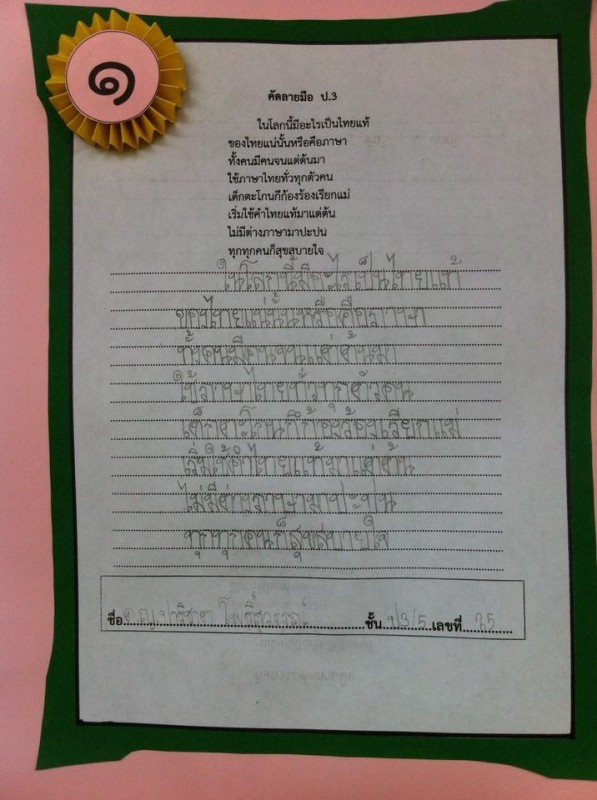 ๑
คัดลายมือ ป.3
ในโลกนี้มีอะไรเป็นไทยแท้
ของไทยแน่นั้นหรือคือภาษา
ทั้งคนมีคนจนแต่ต้นมา
ใช้ภาษาไทยทั่วทุกตัวคน
เด็กตะโกนกีก้องร้องเรียกแม่
เริ่มใช้คำไทยแท้มาแต่ต้น
ไม่มีต่างภาษามาปะปน
ทุกทุกคนก็สุขสบายใจ
ในโลกนี้มีอะไรเป็นไทยแท้
ของไทยแน่นั้นหรือคือภาษา
ทั้งคนมีคนจนแต่ต้นมา
ใช้ภาษาไทยทั่วทุกตัวคน
เด็กตะโกนกีก้องร้องเรียกแม่
เริ่มใช้คำไทยแท้มาแต่ต้น
ไม่มีต่างภาษามาปะปน
ทุกทุกคนก็สุขสบายใจ
ชื่อ ด.ญ. ชั้น ป3/5 เลขที่ 25